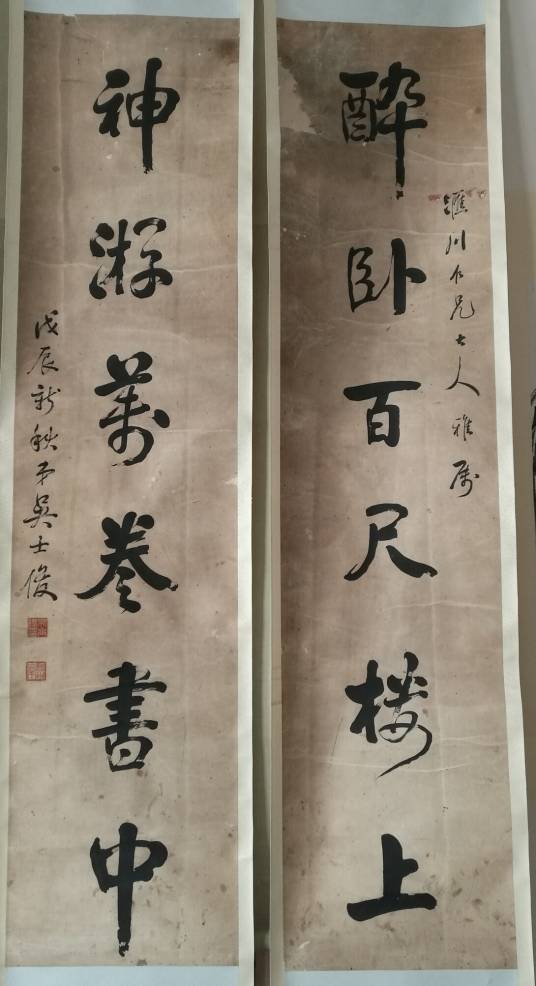 醉卧百尺楼上
滙川仁兄大人雅属
神游萬卷書中
戊辰新秋弟吴士俊